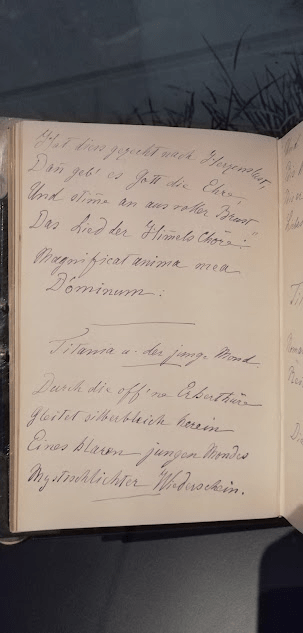 Hat dies gezecht nach Herzenslust,
Dan̄ geb' es Gott die Ehre
Und stim̄e an aus voller Brust
Das Lied der Him̄els Chöre:
Magnificat anima mea
Dóminum:
Titania u. der junge Mond.
Durch die off'ne Erkerthüre
gleitet silberbleich herein
Eines klaren jungen Mondes
Mystischlichter Wiederschein.